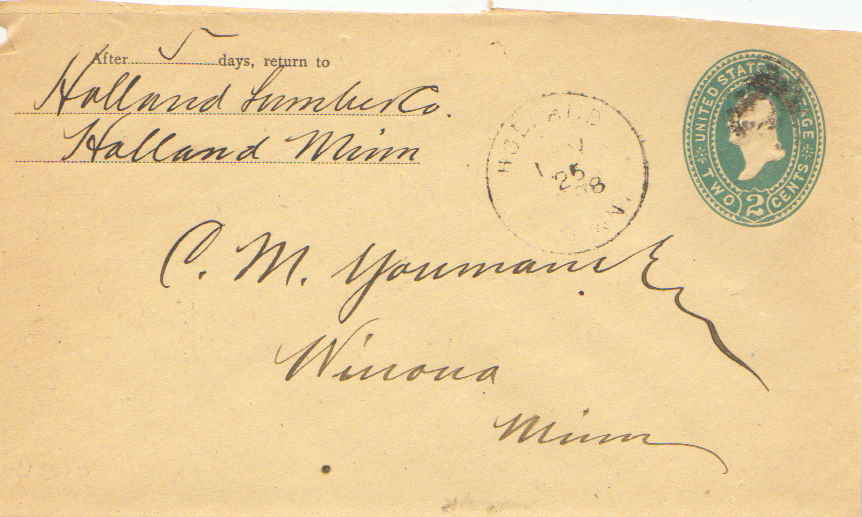 After 5 days, return to
Holland Lumber Co.
Holland Minn
UNITED STATES POSTAGE
TWO 2 CENTS
HOLLAND
25
C. M. Youmans
Winona
Minn